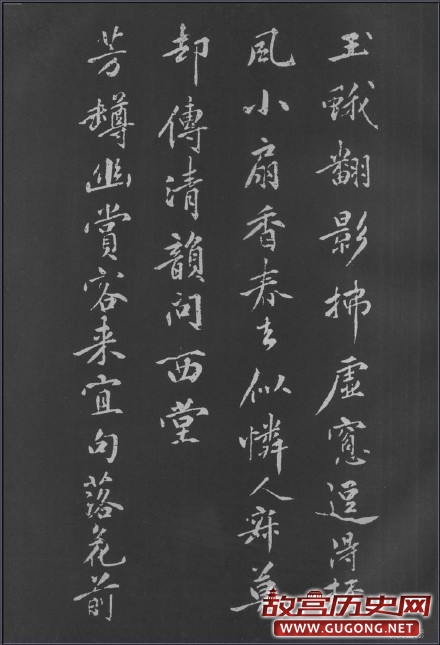 玉蛾翻影拂虛窻逗得
風小扇香春去似憐人寂莫
却傳清韻问西堂
芳罇幽賞客来宜句落花前
故宫历史网
WWW.GUGONG.NET